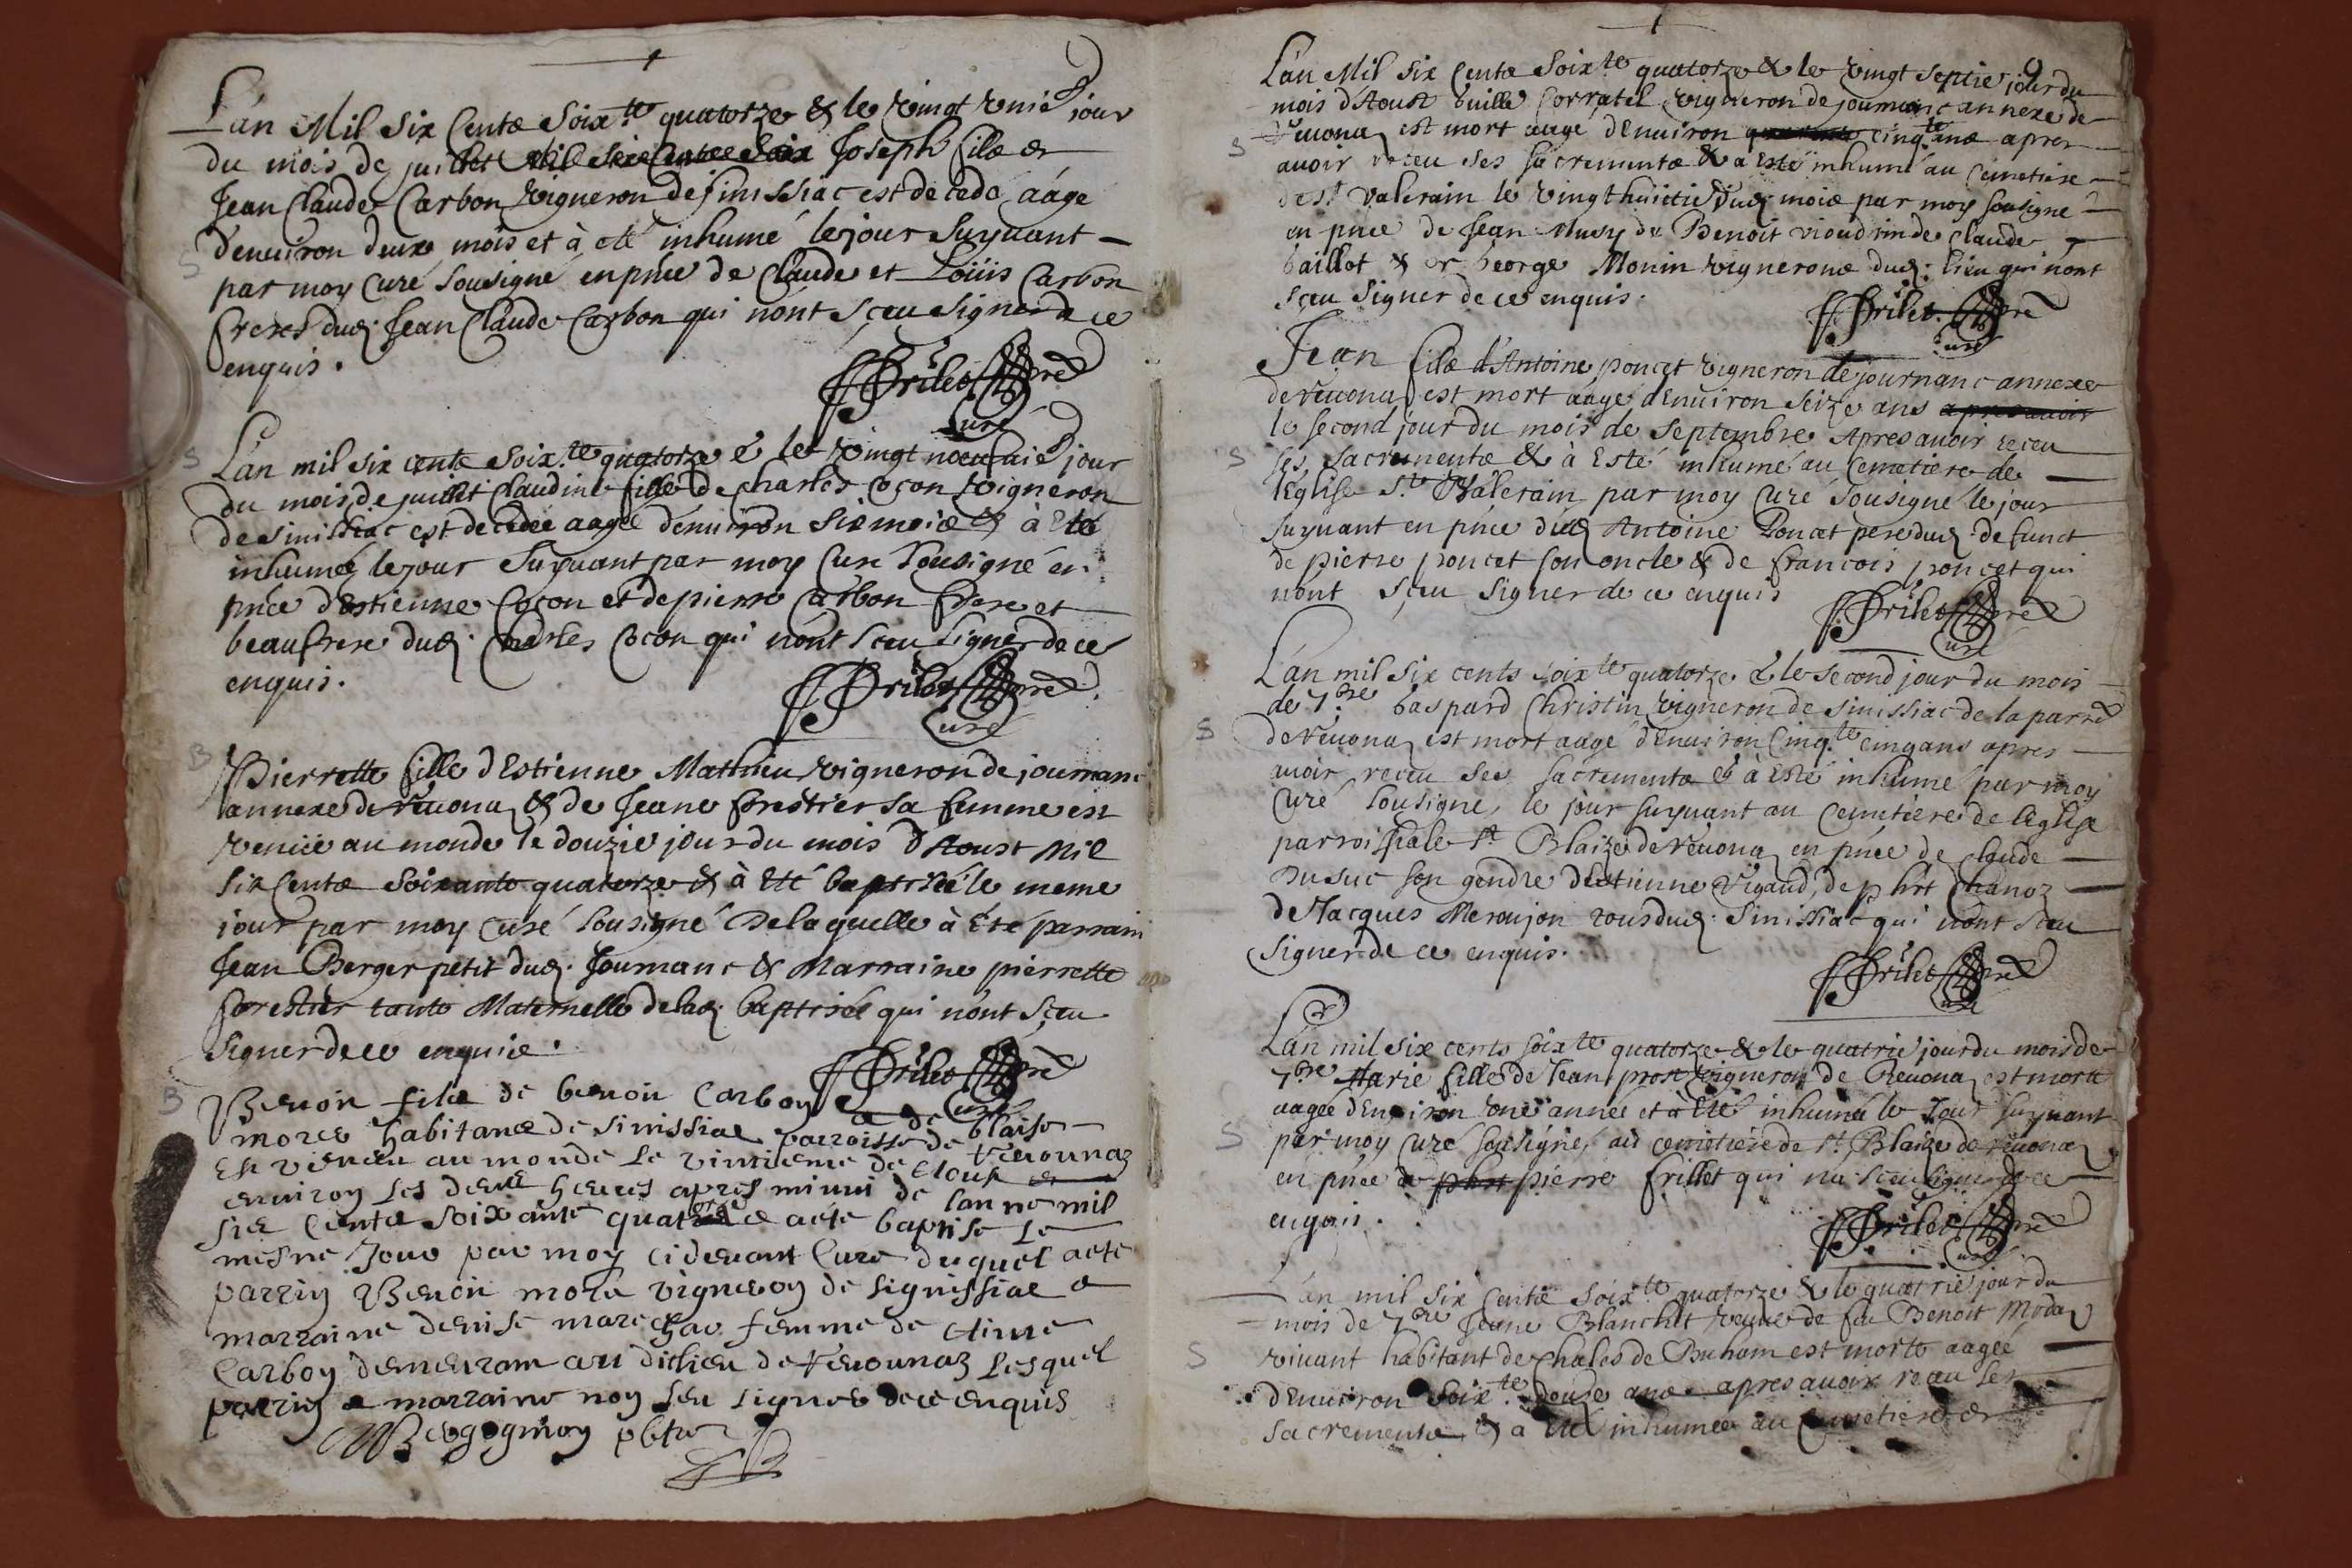 L'an Mil six Cents Soix.te quatorze & le vingt vnié jour
du mois de juillet Joseph fils de
Jean Claude Carbon vigneron de sinissiac est decedé aagé
d'enuiron deux mois et à eté inhumé le jour Suyuant
par moy Curé Sousigné en pñce de Claude et Loüis Carbon
freres dud. Jean Claude Carbon qui n'ont sçeu signer de ce
enquis.
Frilet pre
Curé
S
S
L'an mil six cents Soix.te quatorze & le vingt noeufuié jour
du mois de juillet Claudine fille de Charles Coçon vigneron
de sinissiac est decedée aagée d'enuiron six mois & à Eté
inhumée le jour Suyuant par moy Curé Sousigné en
pñce d'Estienne Coçon et de pierre Carbon frere et
beaufrere dud. Charles Cocon qui n'ont sceu signer de ce
enquis.
Frilet pre
Curé
B
Pierrette fille d'Estienne Mathieu vigneron de journanc
annexe de reuona & de Jeane forestier sa femme est
venüe au monde le douzie jour du mois d'Aoust Mil
six Cents Soixante quatorze & à Eté baptisée le meme
jour par moy Curé Sousigné De laquelle à Eté parrain
Jean Berger petit dud. Journanc & Marraine pierrette
forestier tante Maternelle de lad. baptisée qui n'ont sçeu
signer de ce enquis.
Frilet pre
Curé
B
Benoit fils de benoit Carbon & de blaise
morel habitans de sinissiac parroisse de reuounaz
est venu au monde le vintieme de
enuiron les deux heures apres minui de lanne mil
six Cents Soixante quatorze a esté baptise le
mesme Jour par moy ci deuant Curé duquel a esté
parrin Benoit morel vigneron de signissiac &
marraine denise marechar femme de
Carbon demeurant au dit lieu de reuounaz lesquel
parrin & marraine non seu signer de ce enquis
pbtre
9
L'an Mil six Cents Soix.te quatorze & le vingt septie jour du
mois d'Aoust Guille Corratel vigneron de journanc annexe de
reuona est mort aagé d'Enuiron cinq.te ans apres
S
auoir receu ses sacrements & à Esté inhumé au Cemetiere
de S.t Valerain le vingt huictie dud. mois par moy sousigné
en pñce de Jean Musy de Benoit vioudrin de Claude
baillot & de George Monin vignerons dud. lieu qui n'ont
sçeu signer de ce enquis.
Frilet pre
Curé
Jean fils d'Antoine poncet vigneron de journanc annexe
de reuona est mort aagé d'Enuiron seize ans apres auoir
le second jour du mois de Septembre Apres auoir receu
S
ses Sacrements & à Esté inhumé au Cemetiere de
l'Eglise S.t Valerain par moy Curé Sousigné le jour
suyuant en pñce dud. Antoine Poncet pere dud. defunct
de pierre poncet son oncle & de francois poncet qui
n'ont sçeu signer de ce enquis
Frilet pre
Curé
L'an mil six cents soix.te quatorze & le second jour du mois
de 7.bre Gaspard Christin vigneron de sinissiac de la parre
S
de reuona est mort aagé d'Enuiron Cinq.te cinq ans apres
auoir receu ses sacrements & à Esté inhumé par moy
Curé Sousigné, le jour suyuant au Cemetiere de l'Eglise
parroissiale S.t Blaize de reuona en pñce de Claude
Dusuc son gendre d'Estienne Vigaud, de phirt Chanoz
de Jacques Meroujon tous dud. Sinissiac qui n'ont sceu
Signer de ce enquis.
Frilet pre
Curé
L'an mil six cents soix.te quatorze & le quatrie jour du mois de
7.bre Marie fille de Jean prost vigneron de Reuona est morte
aagée d'Enuiron vne année et à Eté inhumée le Jour suyuant
S
par moy Curé sousigné, au cemetiere de S.t Blaize de reuona
en pñce de pierre frillet qui n'a sceu signer de ce
enquis.
Frilet pre
Curé
L'an mil six Cents Soix.te quatorze & le quatrie jour du
mois de 7.bre Jeane Blanchet veuue de feu Benoit Moda
S
viuant habitant de Chales de Buham est morte aagée
d'Enuiron Soix.te douze ans apres auoir receu ses
sacrements & à Eté inhumée au Cemetiere de